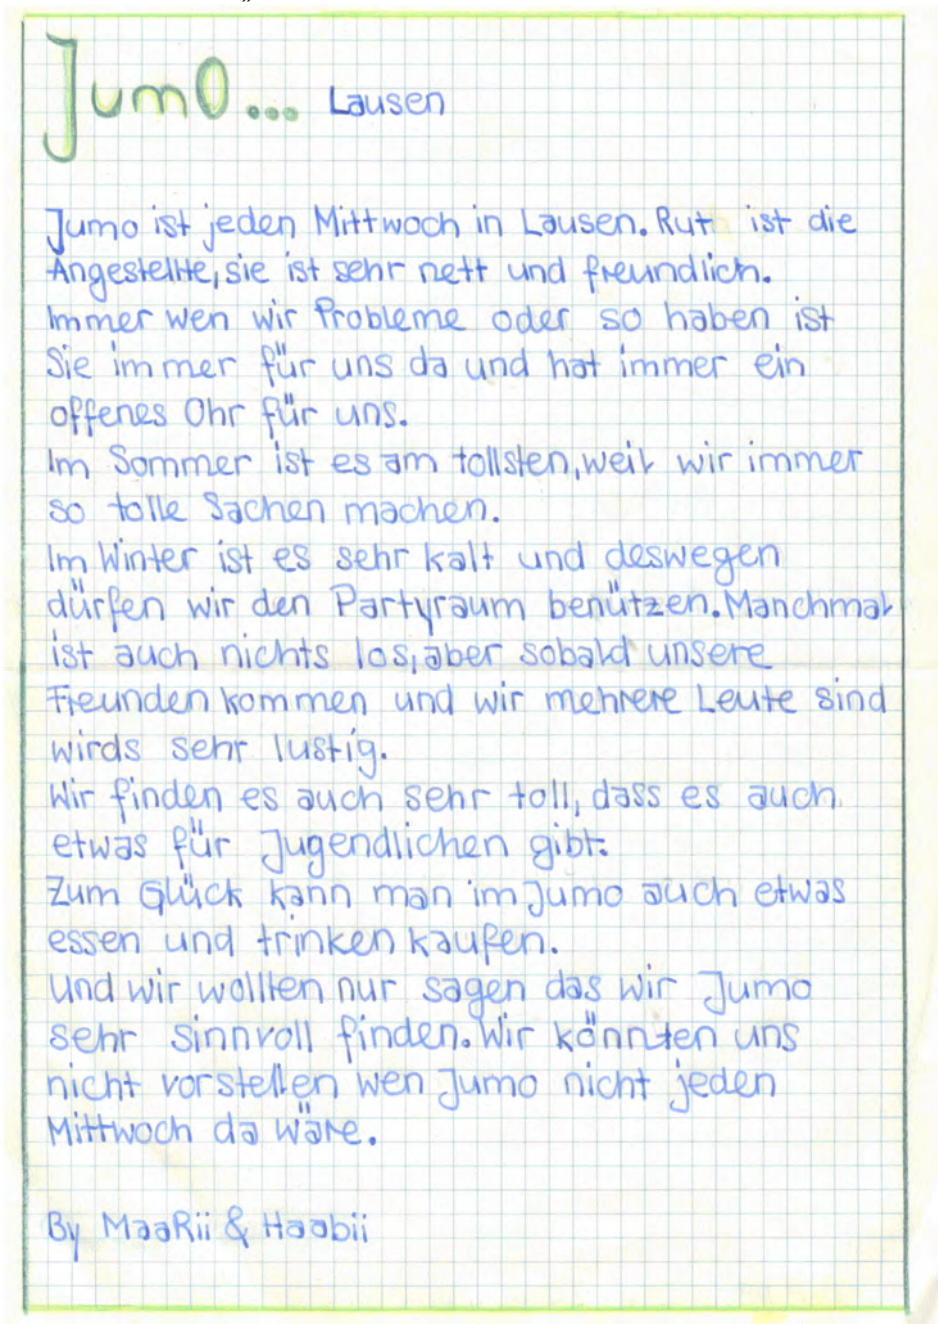 Jumo... Lausen
Jumo ist jeden Mittwoch in Lausen. Rut ist die
Angestellte, sie ist sehr nett und freundlich.
Immer wen wir Probleme oder so haben ist
Sie immer für uns da und hat immer ein
offenes Ohr für uns.
Im Sommer ist es am tollsten, weil wir immer
so tolle Sachen machen.
Im Winter ist es sehr kalt und deswegen
dürfen wir den Partyraum benützen. Manchmal
ist auch nichts los, aber sobald unsere
Freunden kommen und wir mehrere Leute sind
wirds sehr lustig.
Wir finden es auch sehr toll, dass es auch
etwas für Jugendlichen gibt.
Zum Glück kann man im Jumo auch etwas
essen und trinken kaufen.
Und wir wollten nur sagen das wir Jumo
sehr sinnvoll finden. Wir könnten uns
nicht vorstellen wen Jumo nicht jeden
Mittwoch da wäre.
By MaaRii & Haabii